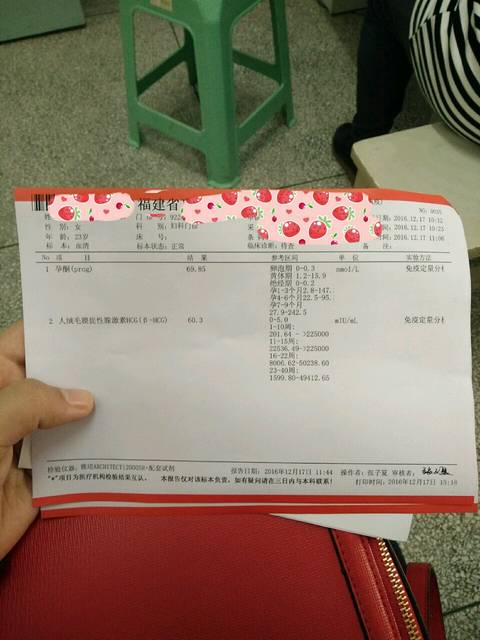 福建省
NO: 0035
姓 门 922 日期: 2016.12.17 10:12
性 别: 女 科 别: 妇科门诊 采 时间: 2016.12.17 10:23
年 龄: 23岁 床 号: 时间: 2016.12.17 11:06
标 本: 血清 标本状态: 正常 临床诊断: 待查 备 注:
No 项 目 结 果 参考区间 单 位 实验方法
1 孕酮(prog) 69.85 卵泡期 0-0.3 nmol/L 免疫定量分析
黄体期 1.2-15.9
绝经后 0-0.2
孕1-3个月2.8-147.
孕4-6个月22.5-95.
孕7-9个月
27.9-242.5
2 人绒毛膜促性腺激素HCG(β-HCG) 60.3 0-5.0 mIU/mL 免疫定量分析
1-10周:
201.64 ->225000
11-15周:
22536.49->225000
16-22周:
8006.62-50238.60
23-40周:
1599.80-49412.65
检验仪器: 雅培ARCHITECTI2000SR+配套试剂 报告日期: 2016年12月17日 11:44 操作者: 张子夏 审核者:
"*"项目为医疗机构检验结果互认。 本报告仅对该标本负责, 如有疑问请在三日内与本科联系! 打印时间: 2016年12月17日 15:18